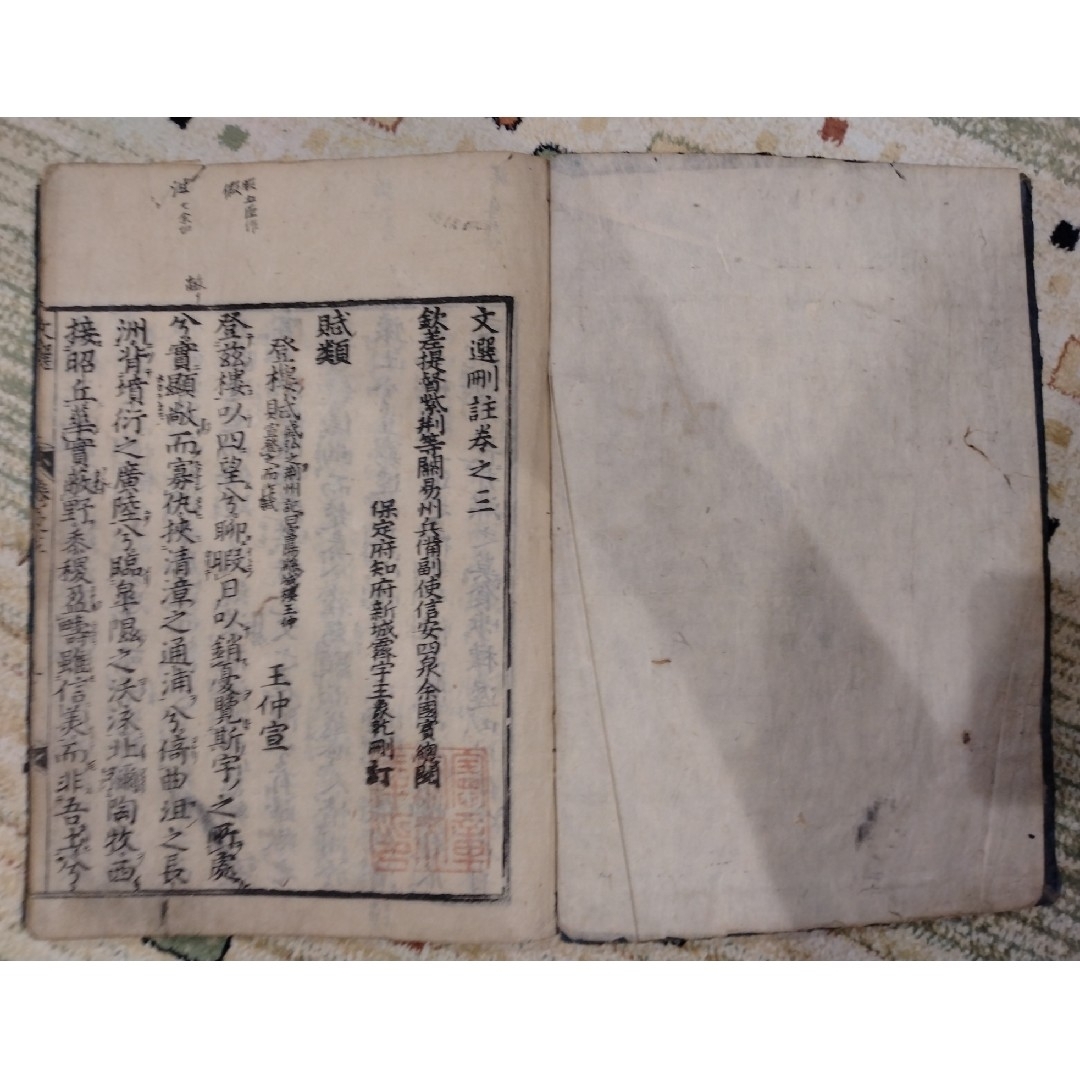 文選刪註卷之三
欽差提督紫荆等關易州兵備副使信安四泉余國賓總閱
保定府知府新城霽宇王象乾刪訂
賦類
登樓賦盛弘之荊州記曰當陽縣城樓王仲
宣登之而作賦
王仲宣
登茲樓以四望兮聊暇日以銷憂覽斯宇之所處
兮實顯敞而寡仇挾清漳之通浦兮倚曲沮之長
洲背墳衍之廣陸兮臨皐隰之沃流北彌陶牧西
接昭丘華實蔽野黍稷盈疇雖信美而非吾土兮
文選
假